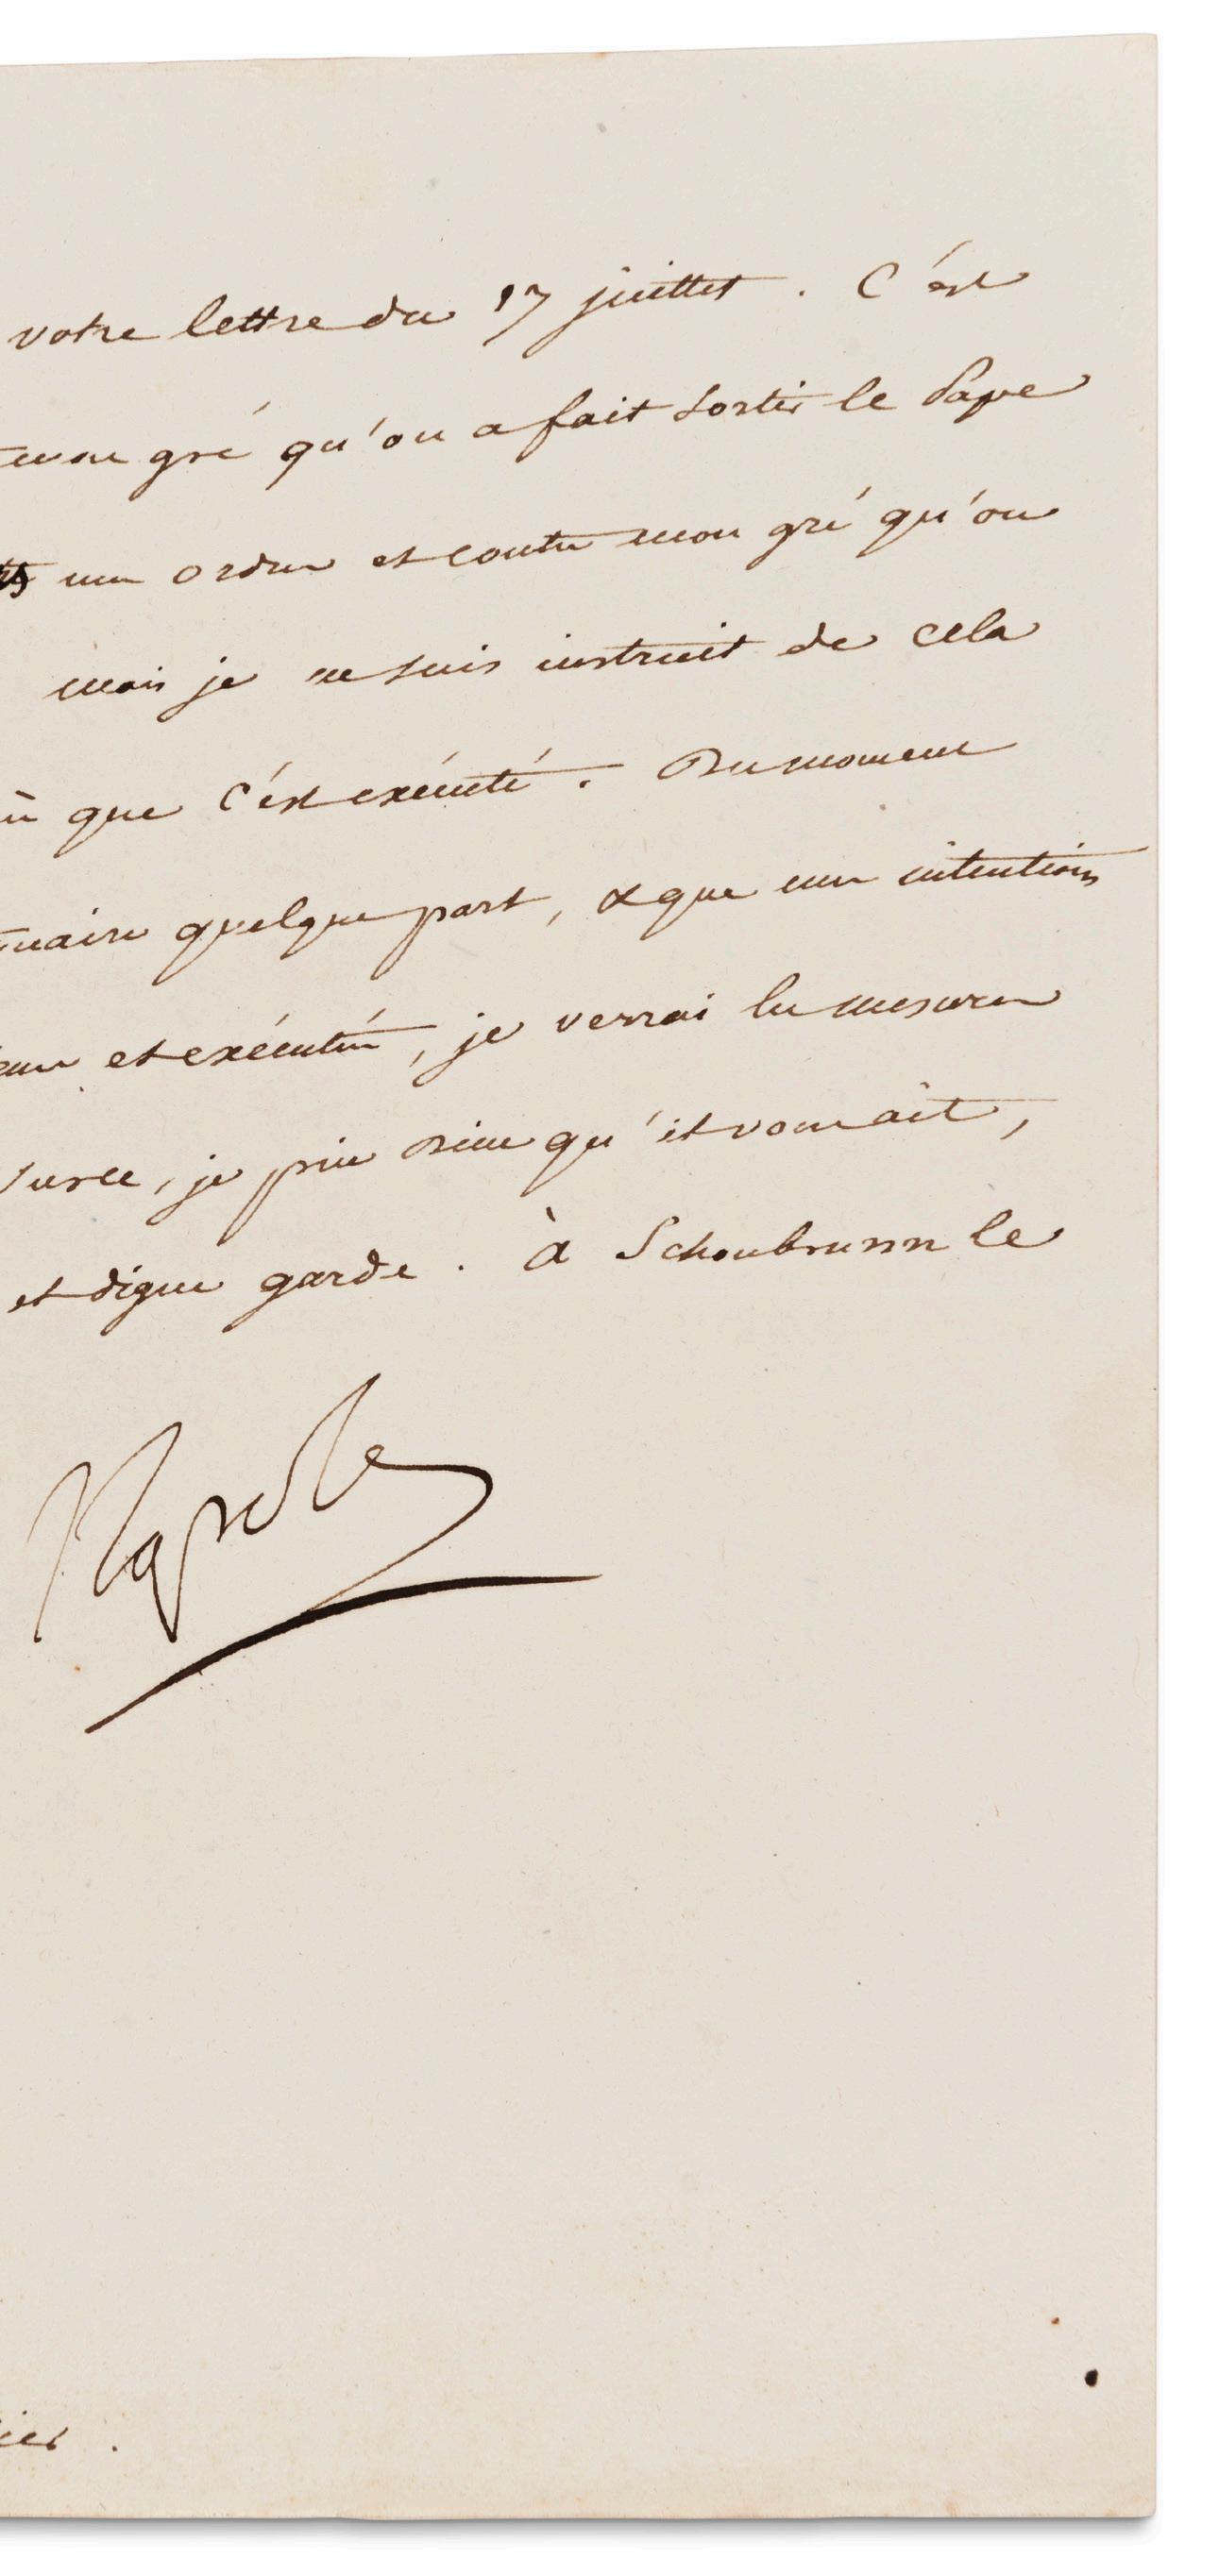 votre lettre du 17 juillet. C'est
mon gré qu'on a fait sortir le Pape
mes ordres et contre mon gré qu'on
mais je ne suis instruit de cela
que c'est exécuté. Du moment
quelque part, & que mes intentions
et exécutées, je verrai les mesures
sur ce, je prie Dieu qu'il vous ait,
et digne garde. à Schonbrunn le
Napole